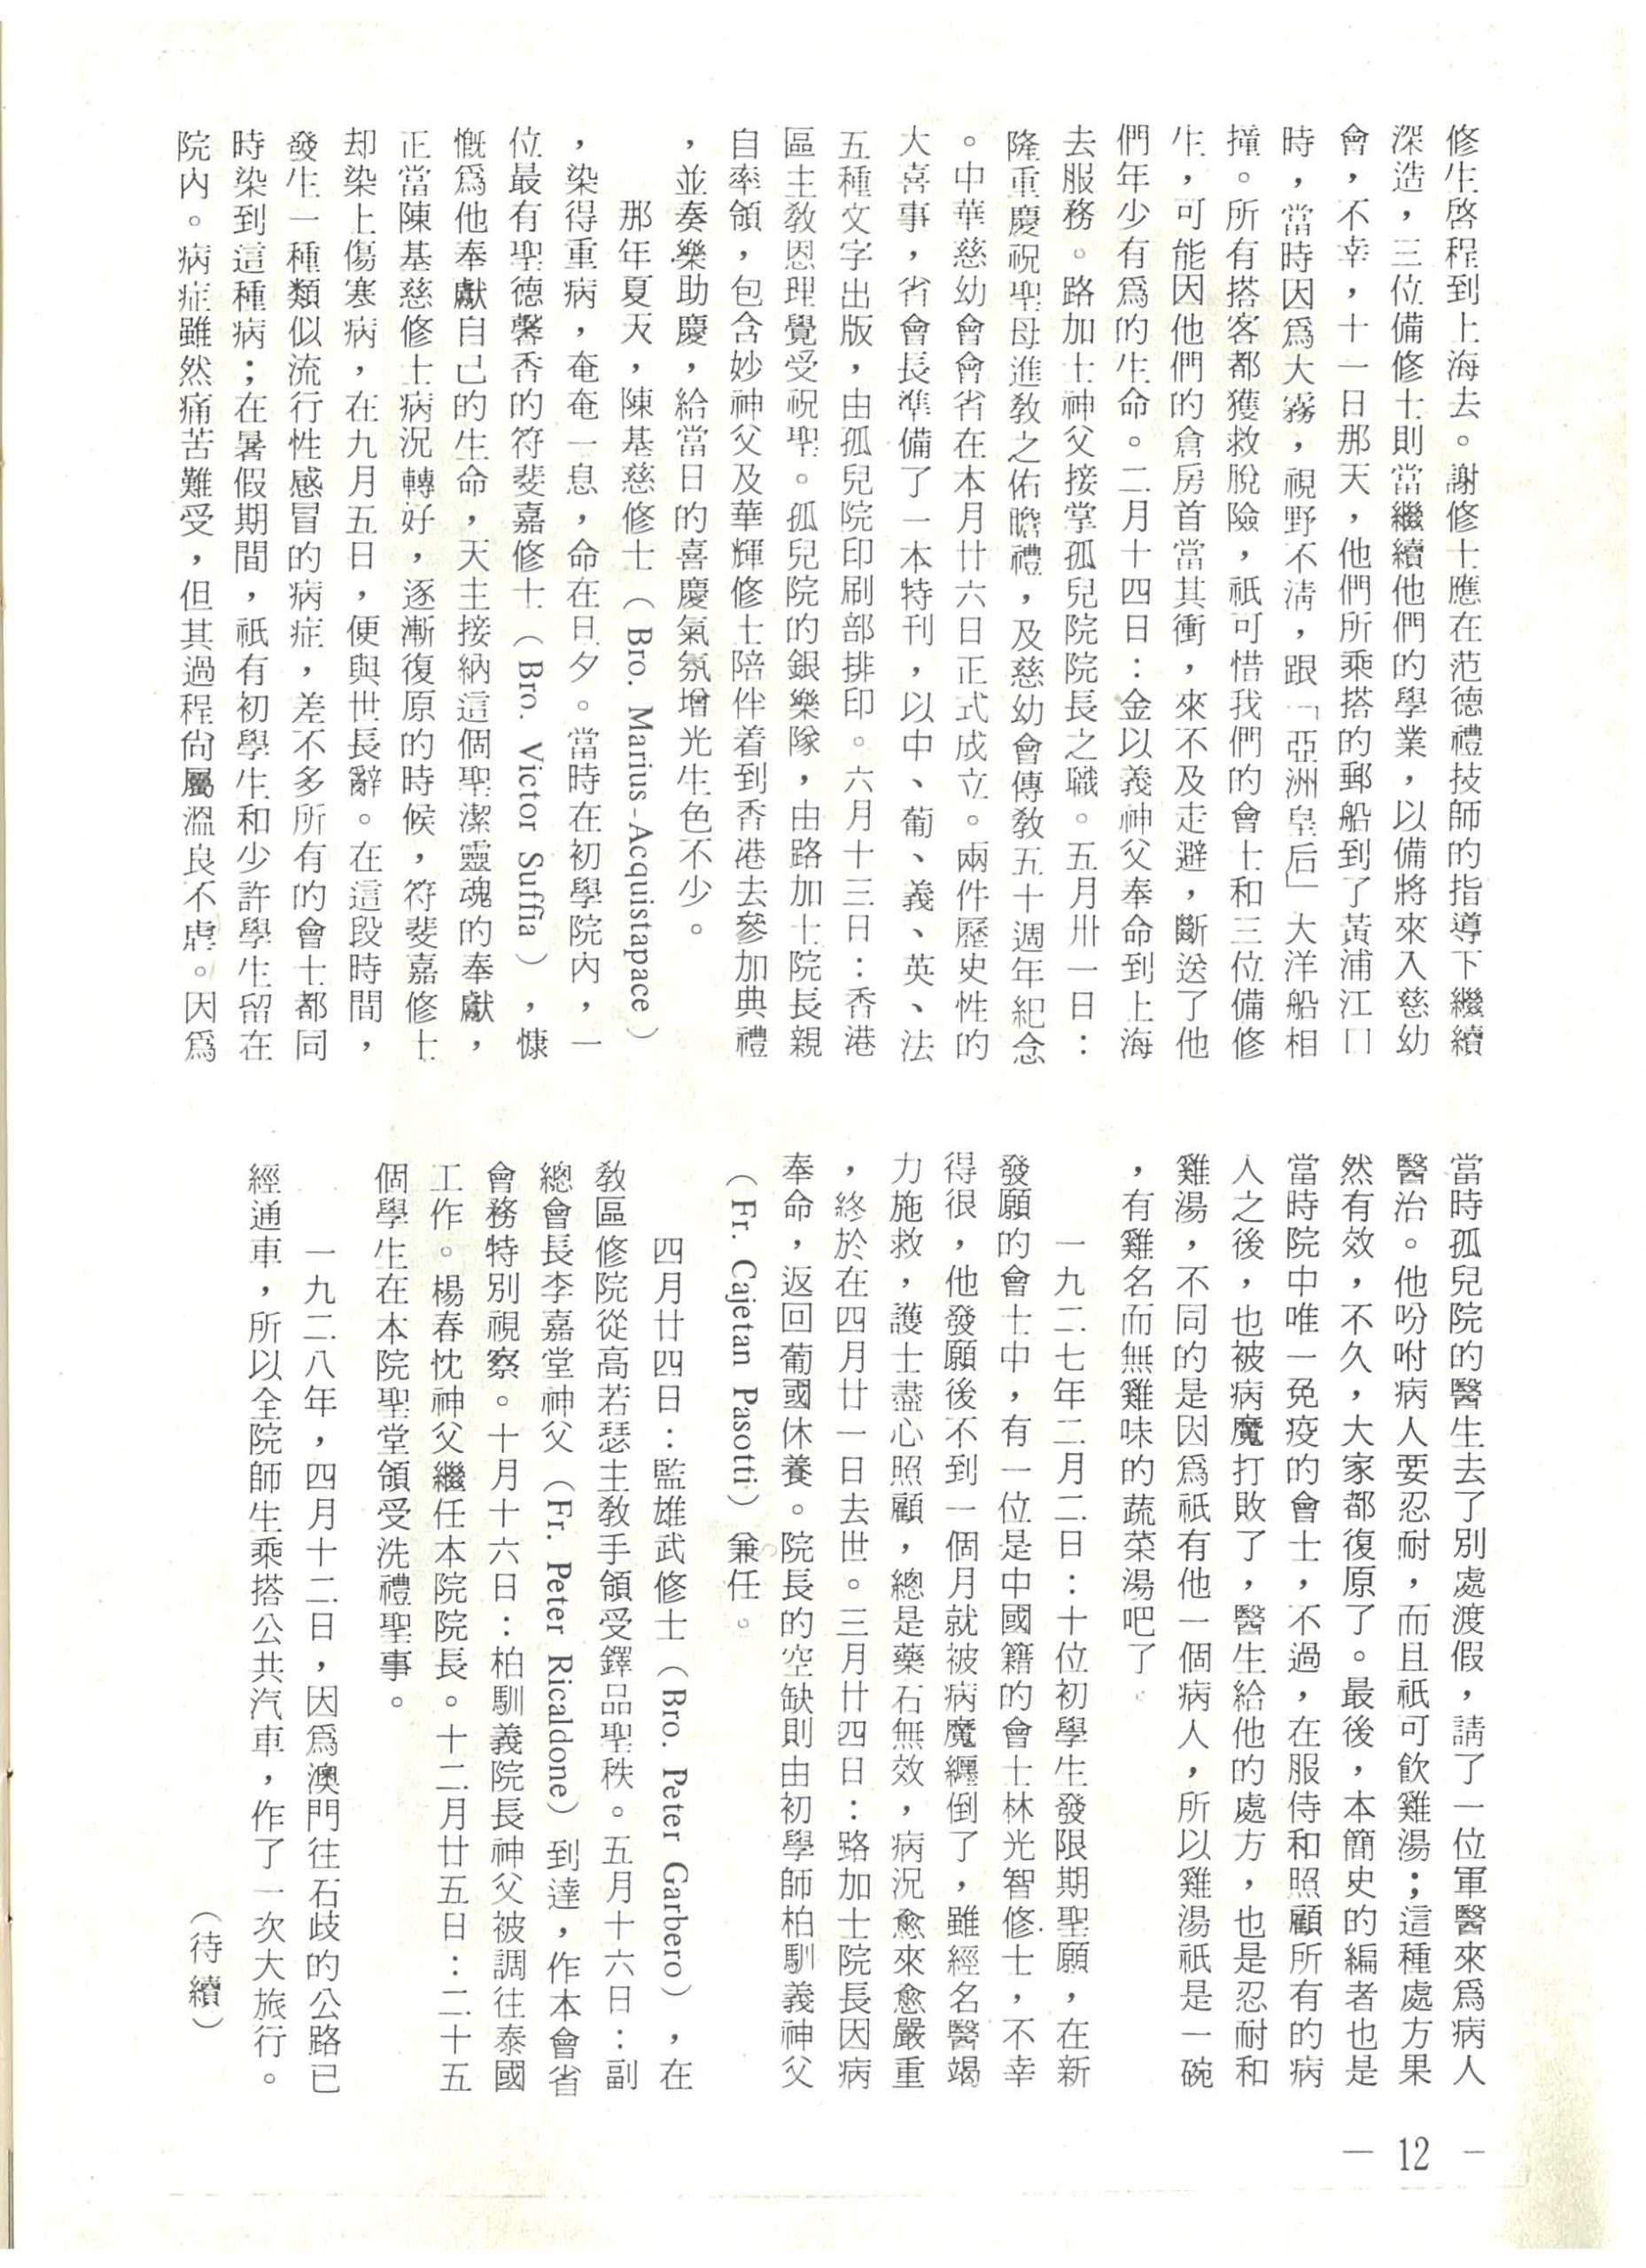 修生啓程到上海去。謝修士應在范德禮技師的指導下繼續
深造，三位備修士則當繼續他們的學業，以備將來入慈幼
會，不幸，十一日那天，他們所乘搭的郵船到了黃浦江口
時，當時因爲大霧，視野不淸，跟「亞洲皇后」大洋船相
撞。所有搭客都獲救脫險，祇可惜我們的會士和三位備修
生，可能因他們的倉房首當其衝，來不及走避，斷送了他
們年少有爲的生命。二月十四日：金以義神父奉命到上海
去服務。路加士神父接掌孤兒院院長之職。五月卅一日：
隆重慶祝聖母進敎之佑瞻禮，及慈幼會傳敎五十週年紀念
。中華慈幼會會省在本月廿六日正式成立。兩件歷史性的
大喜事，省會長準備了一本特刊，以中、葡、義、英、法
五種文字出版，由孤兒院印刷部排印。六月十三日：香港
區主敎恩理覺受祝聖。孤兒院的銀樂隊，由路加士院長親
自率領，包含妙神父及華輝修士陪伴着到香港去參加典禮
，並奏樂助慶，給當日的喜慶氣氛增光生色不少。
那年夏天，陳基慈修士（Bro. Marius-Acquistapace）
，染得重病，奄奄一息，命在旦夕。當時在初學院內，一
位最有聖德馨香的符斐嘉修士（Bro. Victor Suffia），慷
慨爲他奉獻自己的生命，天主接納這個聖潔靈魂的奉獻，
正當陳基慈修士病況轉好，逐漸復原的時候，符斐嘉修士
却染上傷寒病，在九月五日，便與世長辭。在這段時間，
發生一種類似流行性感冒的病症，差不多所有的會士都同
時染到這種病；在暑假期間，祇有初學生和少許學生留在
院內。病症雖然痛苦難受，但其過程尙屬溫良不虐。因爲
當時孤兒院的醫生去了別處渡假，請了一位軍醫來爲病人
醫治。他吩咐病人要忍耐，而且祇可飮雞湯；這種處方果
然有效，不久，大家都復原了。最後，本簡史的編者也是
當時院中唯一免疫的會士，不過，在服侍和照顧所有的病
人之後，也被病魔打敗了，醫生給他的處方，也是忍耐和
雞湯，不同的是因爲祇有他一個病人，所以雞湯祇是一碗
，有雞名而無雞味的蔬菜湯吧了。
一九二七年二月二日：十位初學生發限期聖願，在新
發願的會士中，有一位是中國籍的會士林光智修士，不幸
得很，他發願後不到一個月就被病魔纒倒了，雖經名醫竭
力施救，護士盡心照顧，總是藥石無效，病況愈來愈嚴重
，終於在四月廿一日去世。三月廿四日：路加士院長因病
奉命，返回葡國休養。院長的空缺則由初學師柏馴義神父
（Fr. Cajetan Pasotti）兼任。
四月廿四日：監雄武修士（Bro. Peter Garbero），在
敎區修院從高若瑟主敎手領受鐸品聖秩。五月十六日：副
總會長李嘉堂神父（Fr. Peter Ricaldone）到達，作本會省
會務特別視察。十月十六日：柏馴義院長神父被調往泰國
工作。楊春忱神父繼任本院院長。十二月廿五日：二十五
個學生在本院聖堂領受洗禮聖事。
一九二八年，四月十二日，因爲澳門往石歧的公路已
經通車，所以全院師生乘搭公共汽車，作了一次大旅行。
（待續）
— 12 —